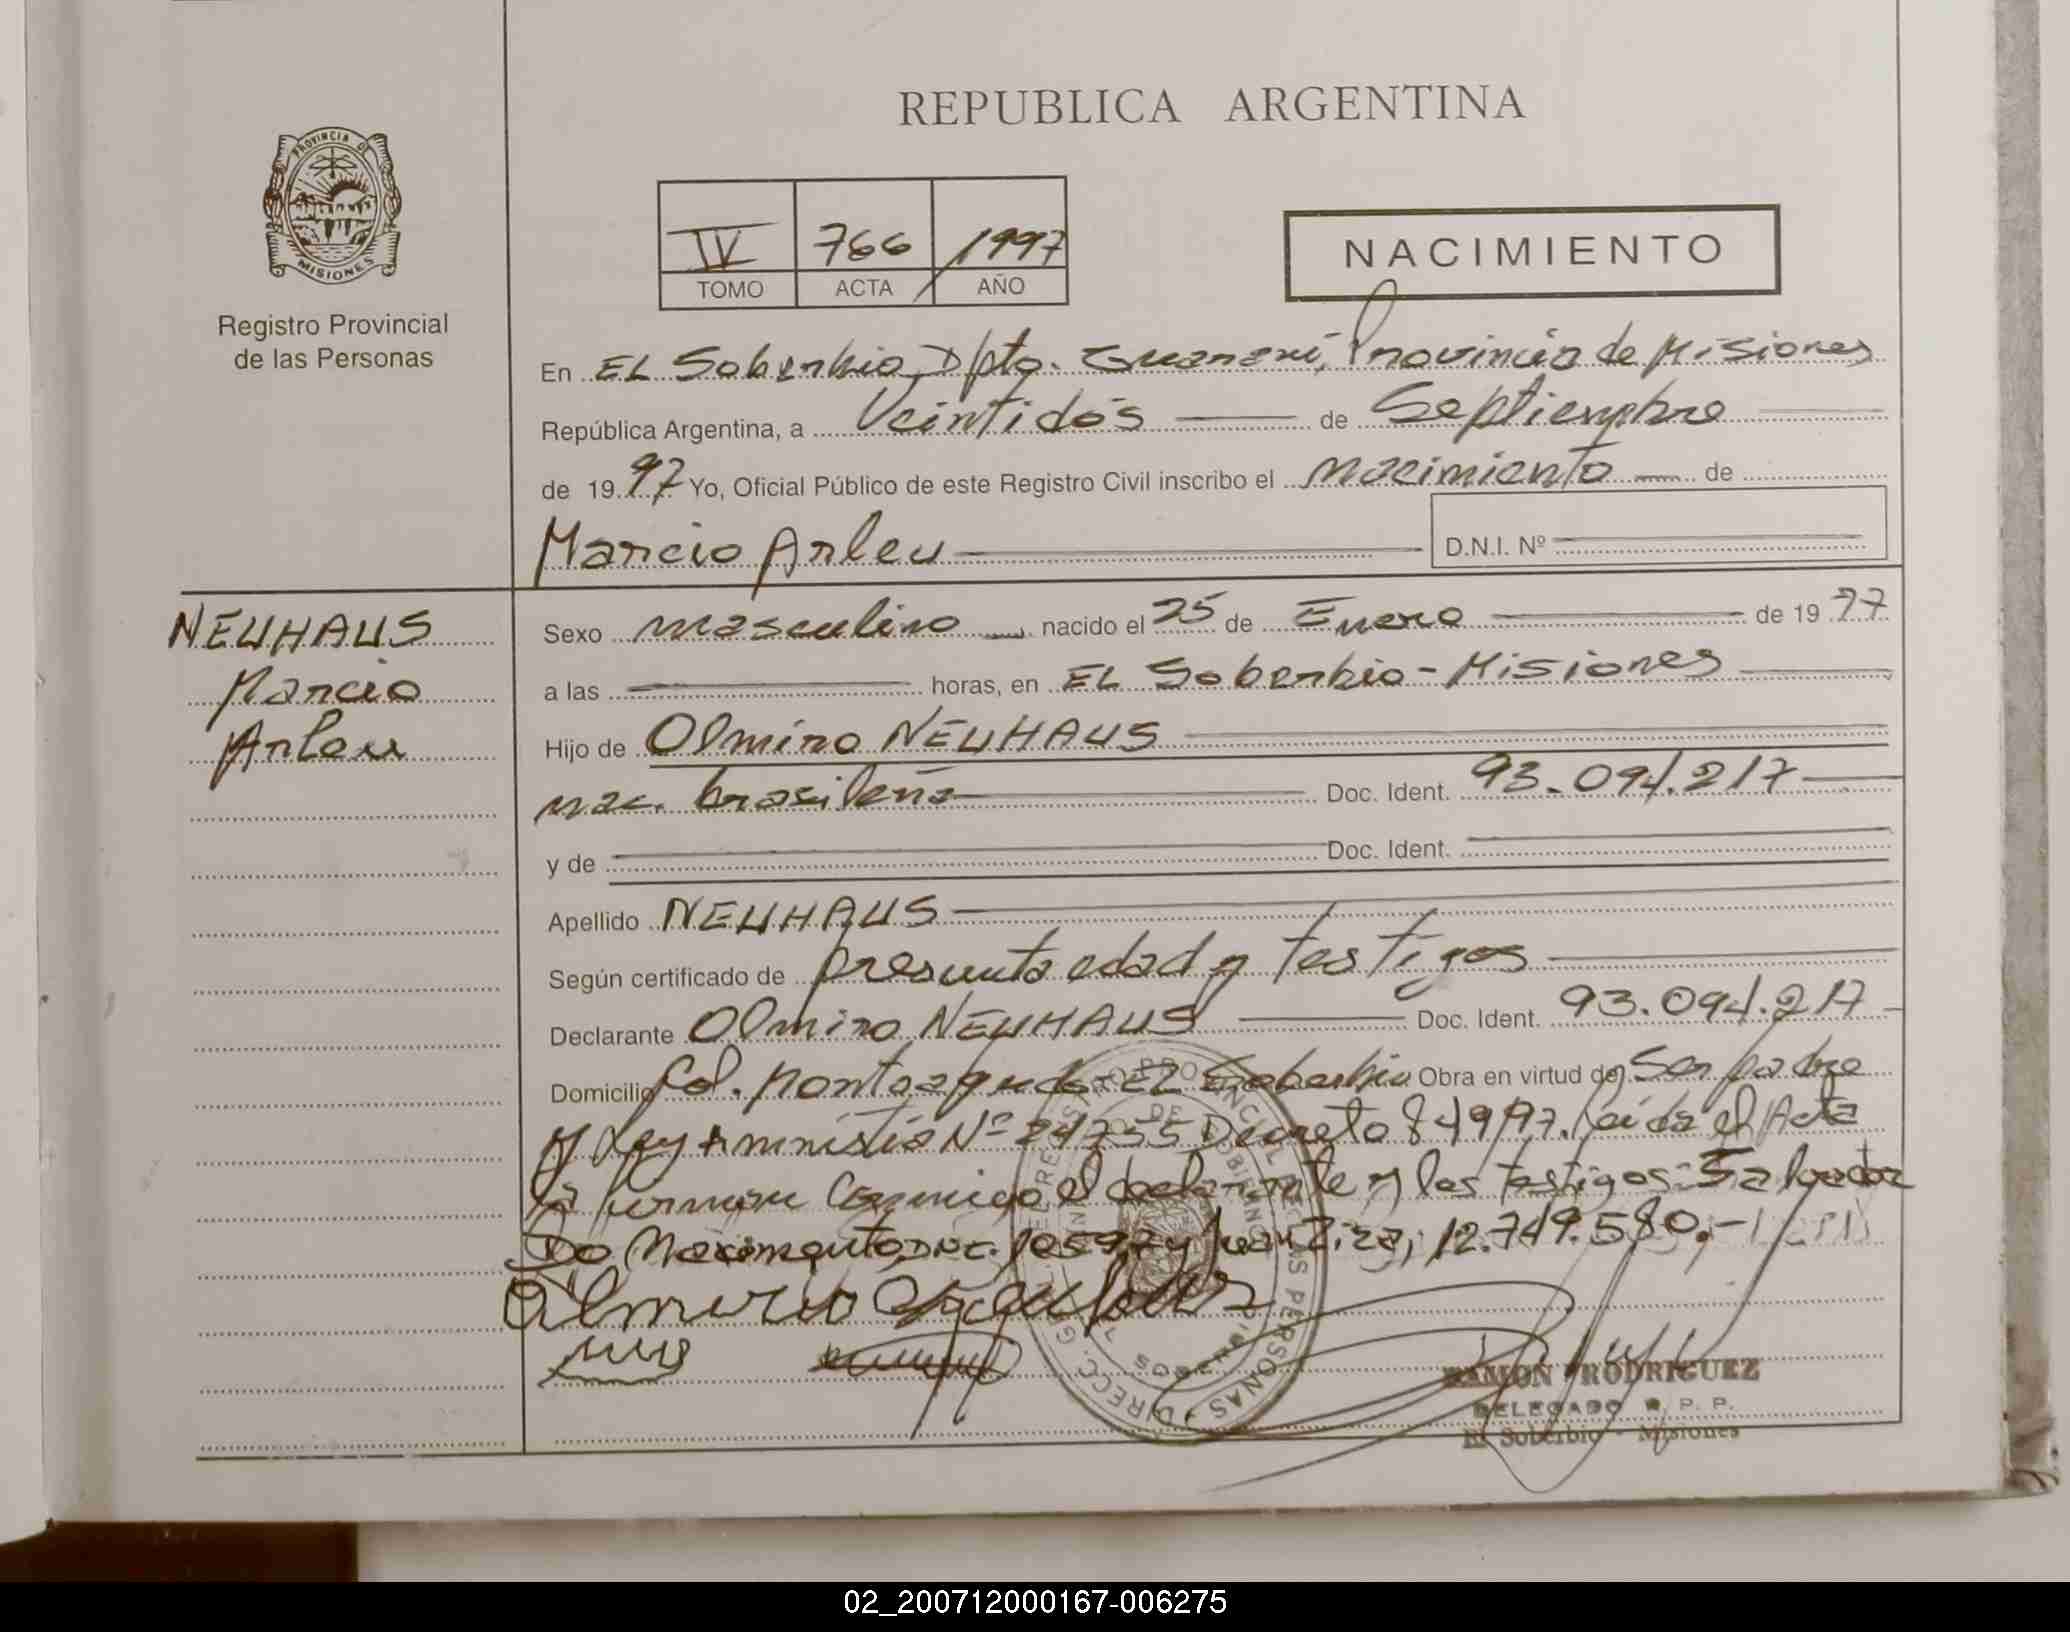 REPUBLICA ARGENTINA
PROVINCIA DE
MISIONES
Registro Provincial
de las Personas
IV 766 1997
TOMO ACTA AÑO
NACIMIENTO
En EL Soberbio, Dpto. Guaraní, Provincia de Misiones
República Argentina, a Veintidós de Septiembre
de 1997 Yo, Oficial Público de este Registro Civil inscribo el nacimiento de
Marcio Arleu
D.N.I. Nº
NEUHAUS
Marcio
Arleu
Sexo masculino nacido el 25 de Enero de 1977
a las horas, en EL Soberbio - Misiones
Hijo de Olmiro NEUHAUS
nac. brasileña Doc. Ident. 93.094.217
y de Doc. Ident.
Apellido NEUHAUS
Según certificado de presunta edad y testigos
Declarante Olmiro NEUHAUS Doc. Ident. 93.094.217
Domicilio Col. Monteagudo - EL Soberbio Obra en virtud de Ser padre
y Ley Amnistia Nº 24755 Decreto 849/97. Leída el Acta
la firman Conmigo el declarante y los testigos: Salvador
Do y Juan 12.749.580.-
RAMON RODRIGUEZ
DELEGADO R. P. P.
El Soberbio - Misiones
02_200712000167-006275